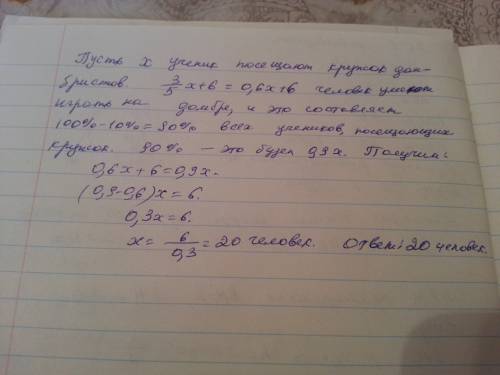 Пусть x ученик посещают кружок дом-
бристов. 3/5 x+6 = 0,6x+6 человек умеют
играть на домбре, и это составляет
100%-10%=90% всех учеников, посещающих
кружок. 90% — это будет 0,9x. Получим:
0,6x+6=0,9x.
(0,9-0,6)x=6.
0,3x=6.
x= 6/0,3 = 20 человек. Ответ: 20 человек.